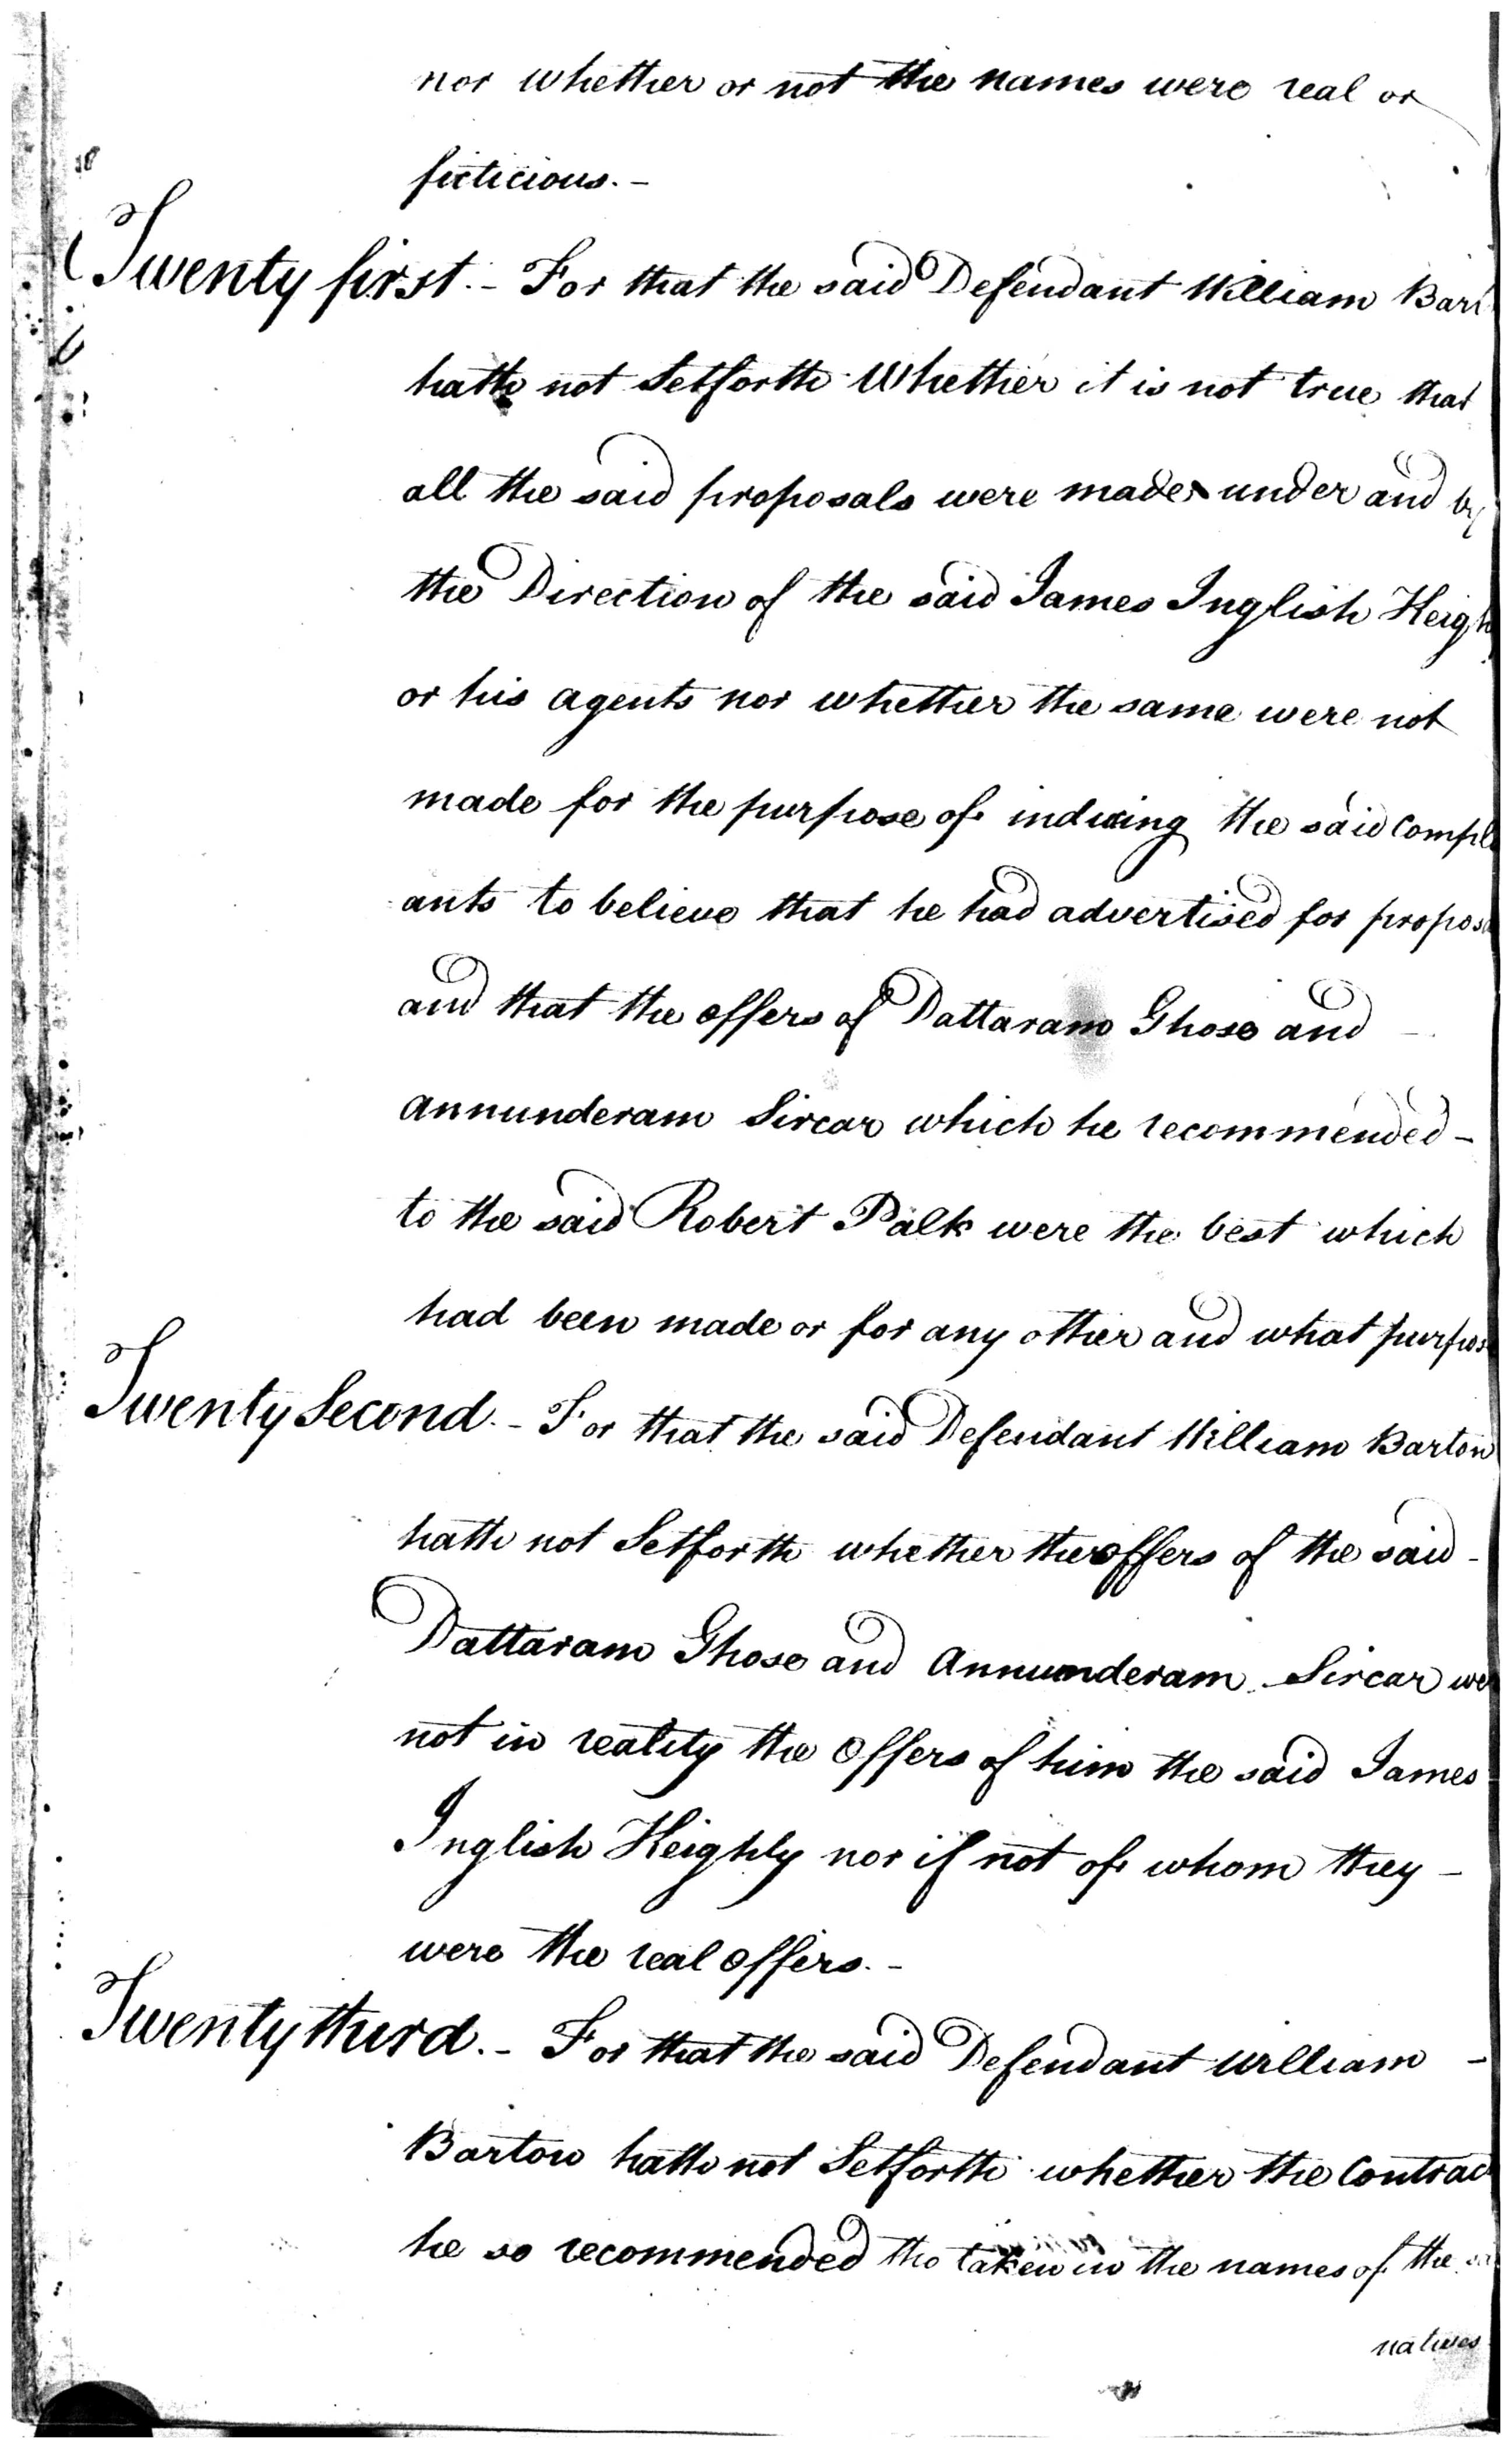 nor whether or not the names were real or
ficticious. -
Twenty first. - For that the said Defendant William Bar
hath not Setforth Whether it is not true that
all the said proposals were made under and by
the Direction of the said James Inglish Keigh
or his agents nor whether the same were not
made for the purpose of inducing the said Compl
ants to believe that he had advertised for propos
and that the offers of Dattaram Ghose and -
Annunderam Sircar which he recommended -
to the said Robert Palk were the best which
had been made or for any other and what purpos
Twenty Second. - For that the said Defendant William Barton
hath not Setforth whether the offers of the said -
Dattaram Ghose and Annunderam Sircar wer
not in reality the Offers of him the said James
Inglish Keighly nor if not of whom they -
were the real Offers. -
Twenty third. - For that the said Defendant William -
Barton hath not Setforth whether the Contract
he so recommended tho taken in the names of the
natives